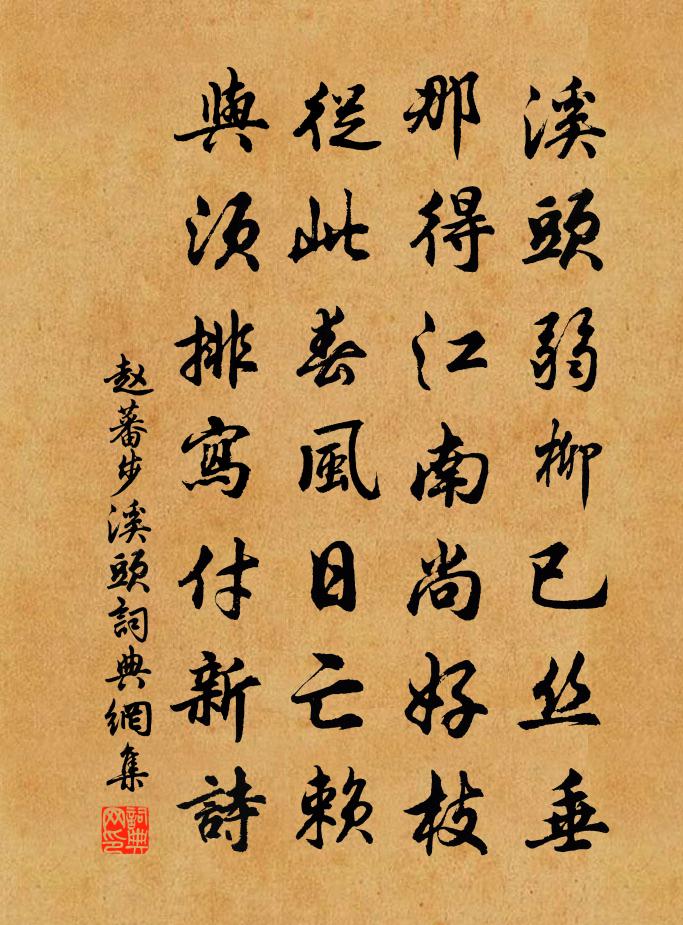 溪頭弱柳已丝垂
那得江南尚好枝
從此春風日亡賴
與須排寫付新詩
赵蕃步溪頭詞典網集
詞典网印